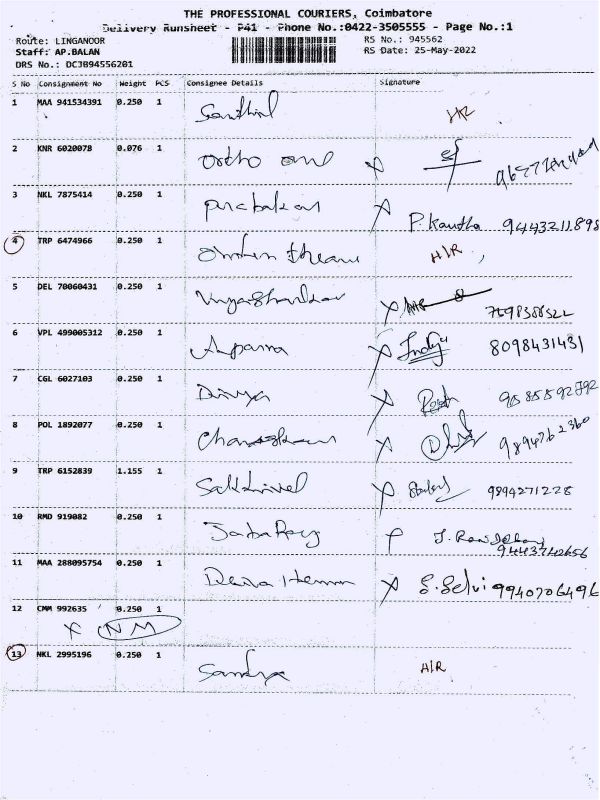 THE PROFESSIONAL COURIERS, Coimbatore
Delivery Runsheet - P41 - Phone No.:0422-3505555 - Page No.:1
Route: LINGANOOR RS No.: 945562
Staff: AP.BALAN RS Date: 25-May-2022
DRS No.: DCJB94556201
S No Consignment No Weight PCS Consignee Details Signature
1 MAA 941534391 0.250 1 Santhil
2 KNR 6020078 0.076 1 Ortho one
3 NKL 7875414 0.250 1
P. Kavitha 9443211898
4 TRP 6474966 0.250 1 H/R
5 DEL 70060431 0.250 1 Vijayashankar
6 VPL 499005312 0.250 1 Aparna 8098431431
7 CGL 6027103 0.250 1 Divya
8 POL 1892077 0.250 1 9894762360
9 TRP 6152839 1.155 1 Sakthivel 9894271228
10 RMD 919082 0.250 1
9443742656
11 MAA 288095754 0.250 1 S. Selvi 9940706496
12 CMM 992635 0.250 1
X NM
13 NKL 2995196 0.250 1 Sandya H/R